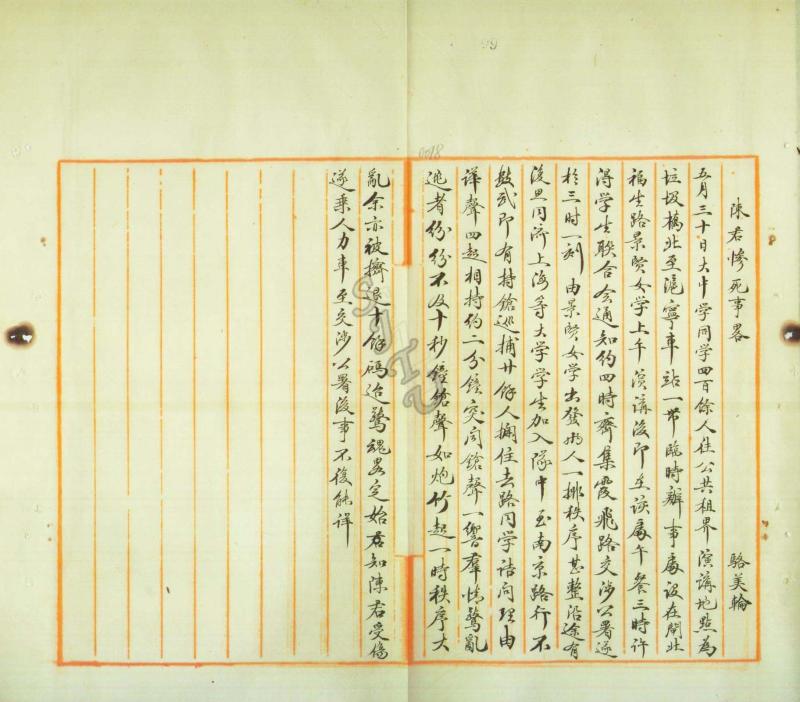 陳君慘死事畧　駱美輪
五月三十日大中学同学四百餘人往公共租界演講地點為
垃圾橋北至滬寧車站一帶臨時辦事處設在閘北
福生路景賢女学上午演講後即至該處午餐三時許
得学生聯合会通知約四時齊集霞飛路交涉公署遂
於三时一刻由景賢女学出發兩人一排秩序甚整沿途有
復旦同濟上海等大学学生加入隊中至南京路行不
數武即有持鎗巡捕廿餘人攔住去路同学詰问理由
譁聲四起相持约二分鐘突闻鎗聲一響羣情驚亂
逃者份份不及十秒鐘鎗聲如炮竹起一時秩序大
亂余亦被擠退十餘碼迨驚魂畧定始君知陳君受傷
遂乘人力車至交涉公署後事不復能詳
0018
99
SJTU